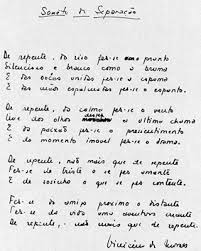 Soneto de Separação
De repente, do riso fez-se o pranto
Silencioso e branco como a bruma
E das bocas unidas fez-se a espuma
E das mãos espalmadas fez-se o espanto.
De repente, da calma fez-se o vento
Que dos olhos desfez a última chama
E da paixão fez-se o pressentimento
E do momento imóvel fez-se o drama.
De repente, não mais que de repente
Fez-se de triste o que se fez amante
E de sozinho o que se fez contente.
Fez-se do amigo próximo o distante
Fez-se da vida uma aventura errante
De repente, não mais que de repente.
Vinicius de Moraes